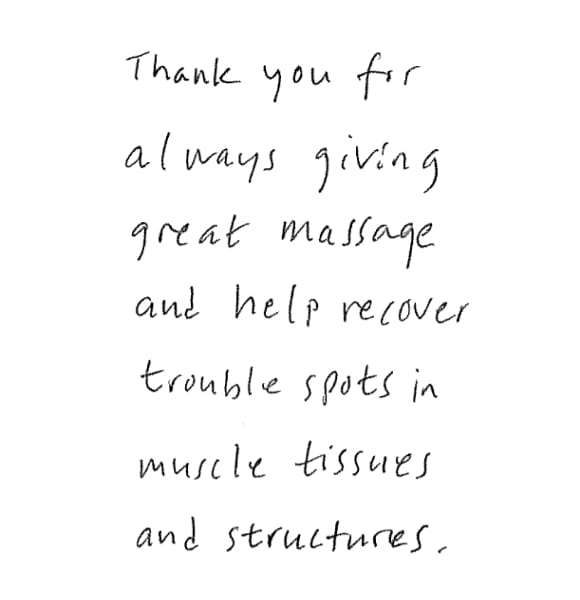 Thank you for
always giving
great massage
and help recover
trouble spots in
muscle tissues
and structures.